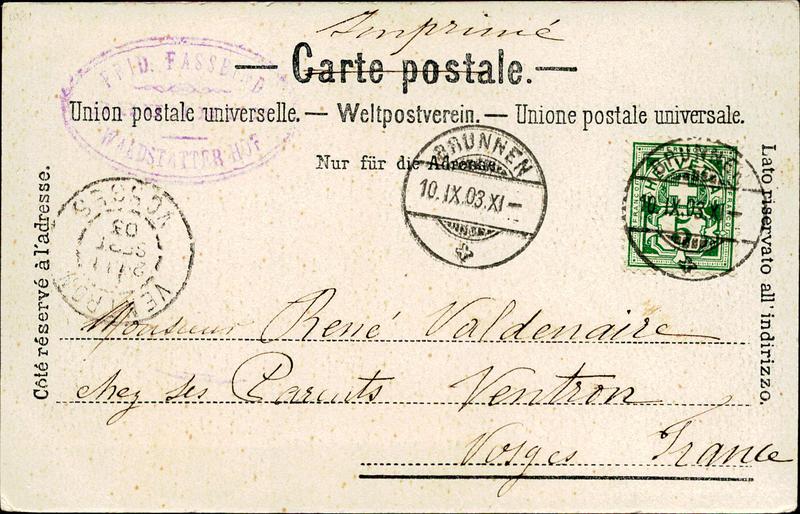 Imprimé
Carte postale.
Union postale universelle. — Weltpostverein. — Unione postale universale.
Nur für die Adresse.
FRID. FASSBIND
WALDSTÄTTER HOF
BRUNNEN
10.IX.03.XI—
HELVETIA
FRANCO
5
10.IX.03.XI—
VENTRON
VOSGES
03
Côté réservé à l'adresse.
Lato riservato all'indirizzo.
Monsieur René Valdenaire
chez ses Parents Ventron
Vosges France